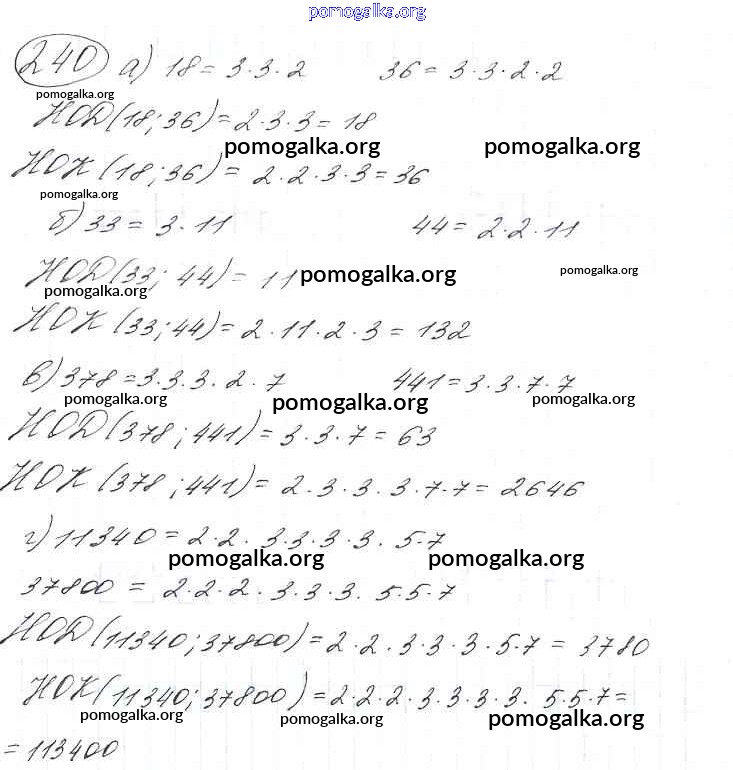 pomogalka.org
240 а) 18 = 3·3·2 36 = 3·3·2·2
pomogalka.org
НОД(18;36) = 2·3·3 = 18
pomogalka.org pomogalka.org
НОК(18;36) = 2·2·3·3 = 36
pomogalka.org
б) 33 = 3·11 44 = 2·2·11
НОД(33; 44) = 11 pomogalka.org pomogalka.org
pomogalka.org
НОК(33;44) = 2·11·2·3 = 132
в) 378 = 3·3·3·2·7 441 = 3·3·7·7
pomogalka.org pomogalka.org pomogalka.org
НОД(378;441) = 3·3·7 = 63
НОК(378;441) = 2·3·3·3·7·7 = 2646
г) 11340 = 2·2·3·3·3·3·5·7
pomogalka.org pomogalka.org
37800 = 2·2·2·3·3·3·5·5·7
НОД(11340;37800) = 2·2·3·3·3·5·7 = 3780
НОК(11340;37800) = 2·2·2·3·3·3·3·5·5·7 =
pomogalka.org pomogalka.org pomogalka.org
= 113400